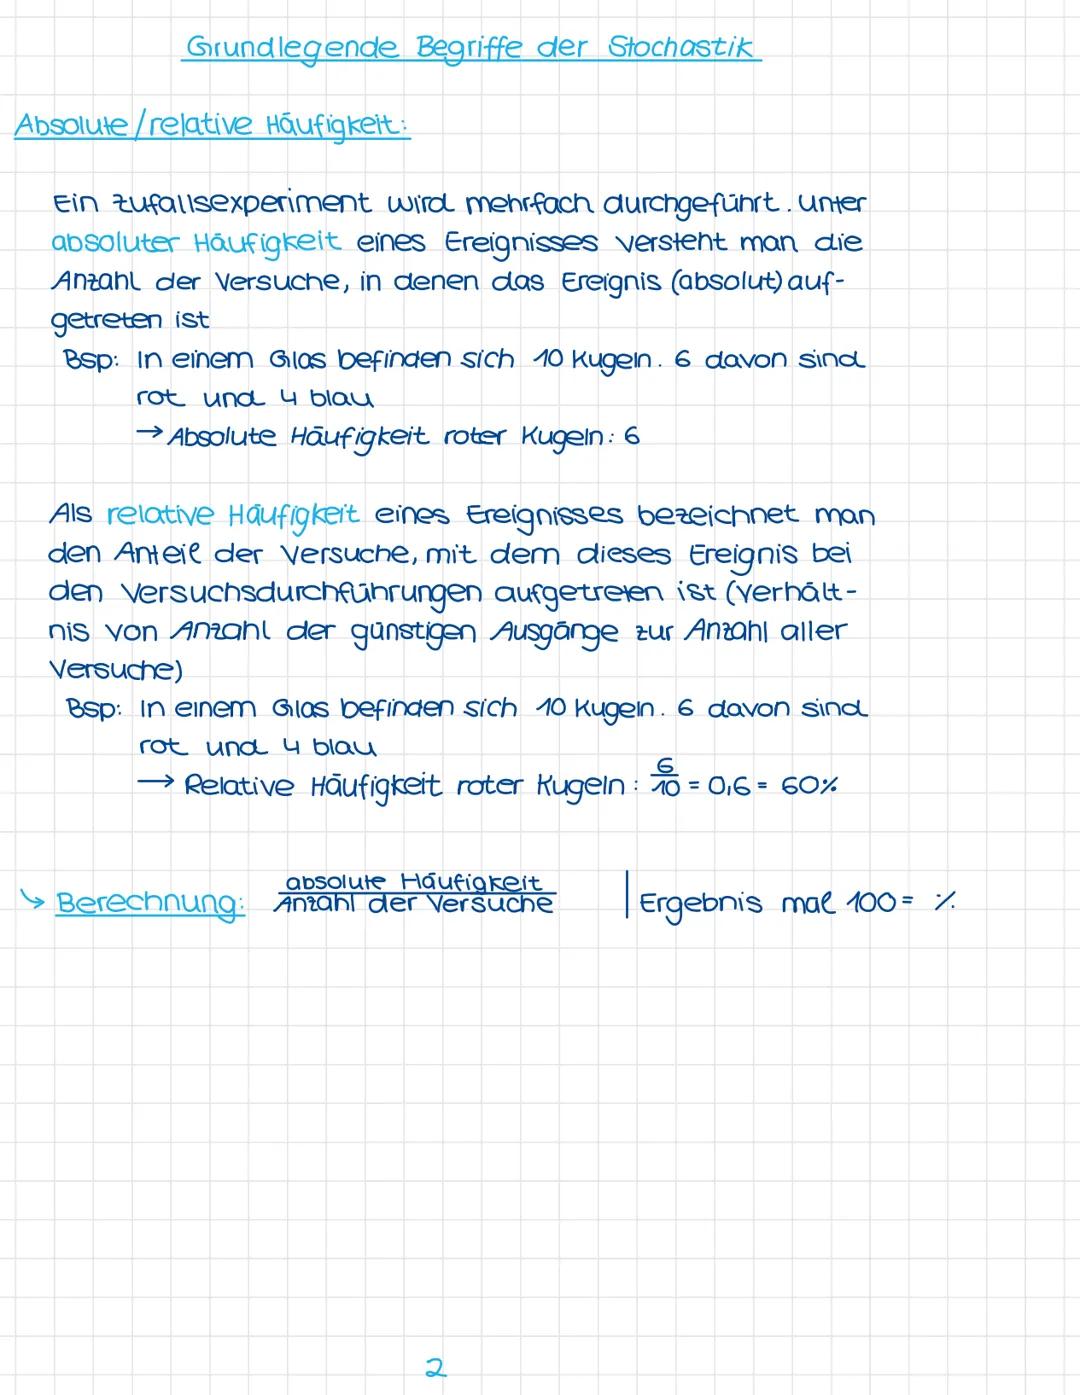 Grundlegende Begriffe der Stochastik
Absolute/relative Häufigkeit:
Ein Zufallsexperiment wird mehrfach durchgeführt. Unter
absoluter Häufigkeit eines Ereignisses versteht man die
Anzahl der Versuche, in denen das Ereignis (absolut) auf-
getreten ist
Bsp: In einem Glas befinden sich 10 Kugeln. 6 davon sind
rot und 4 blau
→ Absolute Häufigkeit roter Kugeln: 6
Als relative Häufigkeit eines Ereignisses bezeichnet man
den Anteil der Versuche, mit dem dieses Ereignis bei
den Versuchsdurchführungen aufgetreten ist (Verhält-
nis von Anzahl der günstigen Ausgänge zur Anzahl aller
Versuche)
Bsp: In einem Glas befinden sich 10 Kugeln. 6 davon sind
rot und 4 blau
→ Relative Häufigkeit roter Kugeln: 6/10 = 0,6 = 60%
↳ Berechnung: absolute Häufigkeit / Anzahl der Versuche | Ergebnis mal 100 = %
2